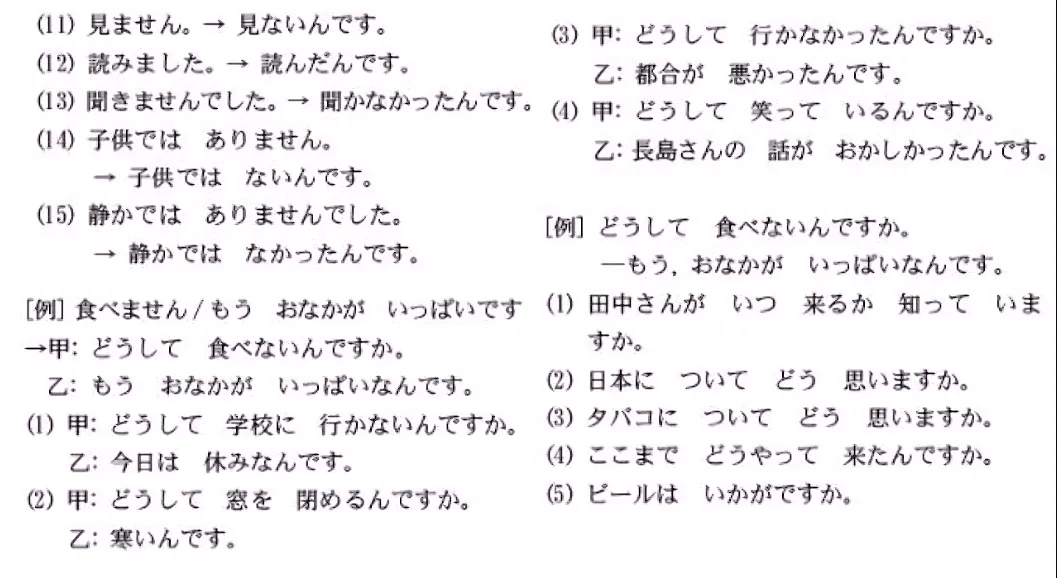 (11) 見ません。→ 見ないんです。
(12) 読みました。→ 読んだんです。
(13) 聞きませんでした。→ 聞かなかったんです。
(14) 子供では　ありません。
→ 子供では　ないんです。
(15) 静かでは　ありませんでした。
→ 静かでは　なかったんです。
[例] 食べません / もう　おなかが　いっぱいです
→甲: どうして　食べないんですか。
乙: もう　おなかが　いっぱいなんです。
(1) 甲: どうして　学校に　行かないんですか。
乙: 今日は　休みなんです。
(2) 甲: どうして　窓を　閉めるんですか。
乙: 寒いんです。
(3) 甲: どうして　行かなかったんですか。
乙: 都合が　悪かったんです。
(4) 甲: どうして　笑って　いるんですか。
乙: 長島さんの　話が　おかしかったんです。
[例] どうして　食べないんですか。
―もう, おなかが　いっぱいなんです。
(1) 田中さんが　いつ　来るか　知って　いま
すか。
(2) 日本に　ついて　どう　思いますか。
(3) タバコに　ついて　どう　思いますか。
(4) ここまで　どうやって　来たんですか。
(5) ビールは　いかがですか。